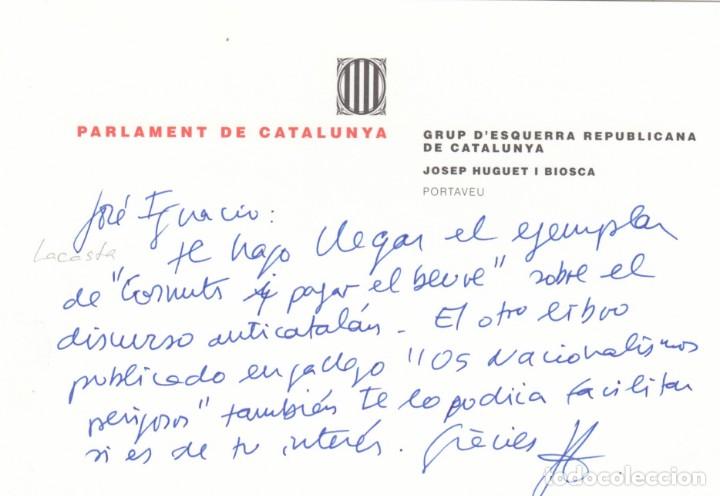 PARLAMENT DE CATALUNYA
GRUP D'ESQUERRA REPUBLICANA
DE CATALUNYA
JOSEP HUGUET I BIOSCA
PORTAVEU
José Ignacio:
Lacasta
te hago llegar el ejemplar
de "Cornuts i pagar el beure" sobre el
discurso anticatalán. El otro libro
publicado en gallego "Os Nacionalismos
perigosos" también te lo podría facilitar
si es de tu interés. Gràcies
todocoleccion